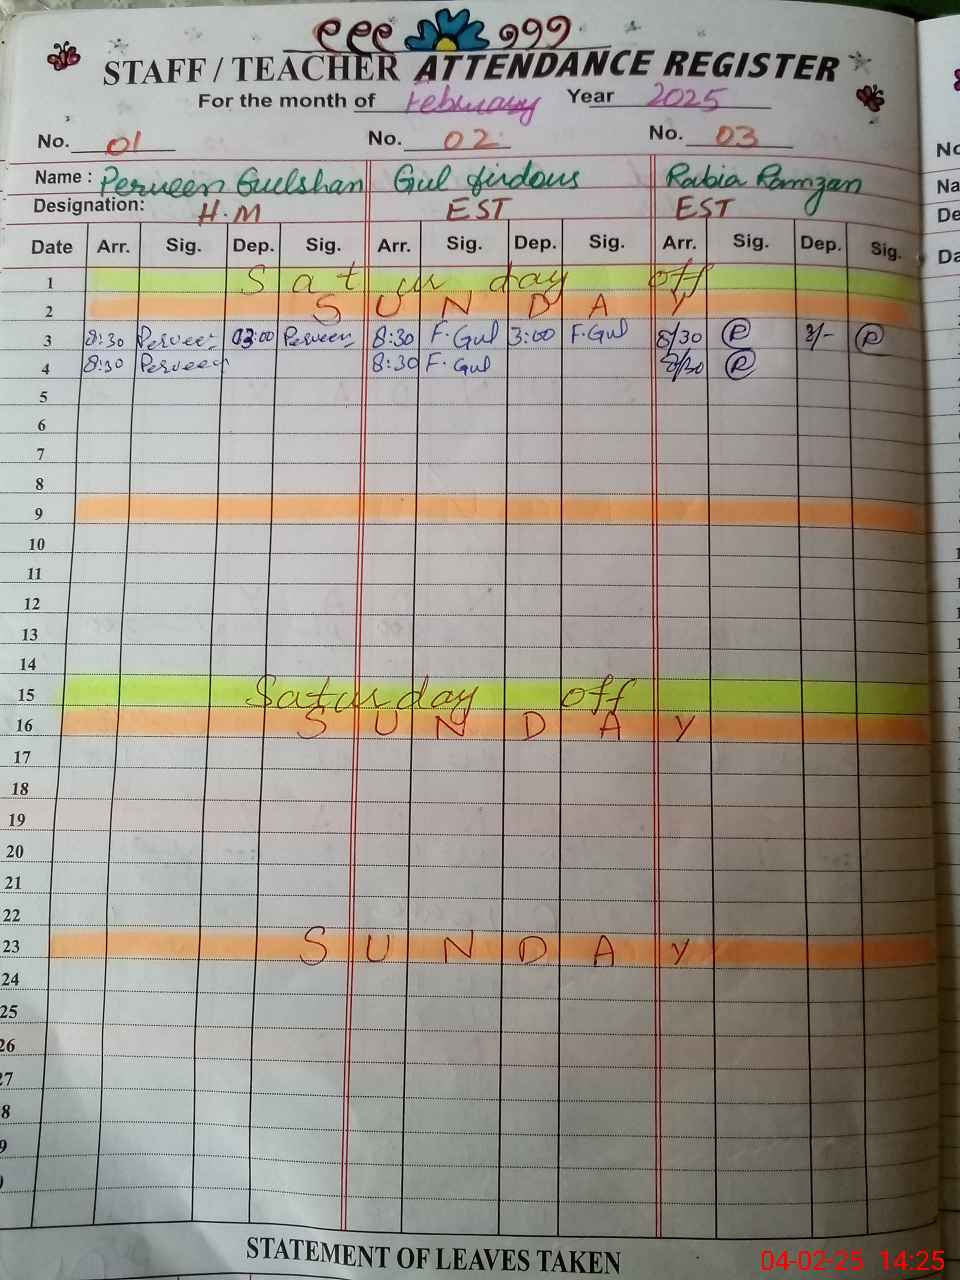 STAFF / TEACHER ATTENDANCE REGISTER
For the month of February Year 2025
No. 01 No. 02 No. 03
Name : Perveen Gulshan Gul firdous Rabia Ramzan
Designation: H.M EST EST
Date Arr. Sig. Dep. Sig. Arr. Sig. Dep. Sig. Arr. Sig. Dep. Sig.
1 Saturday off
2 SUNDAY
3 8:30 Perveen 03:00 Perveen 8:30 F.Gul 3:00 F.Gul 8/30 R 3/- R
4 8:30 Perveen 8:30 F.Gul 8/30 R
5
6
7
8
9
10
11
12
13
14
15 Saturday off
16 SUNDAY
17
18
19
20
21
22
23 SUNDAY
24
25
26
27
8
9
STATEMENT OF LEAVES TAKEN
04-02-25 14:25